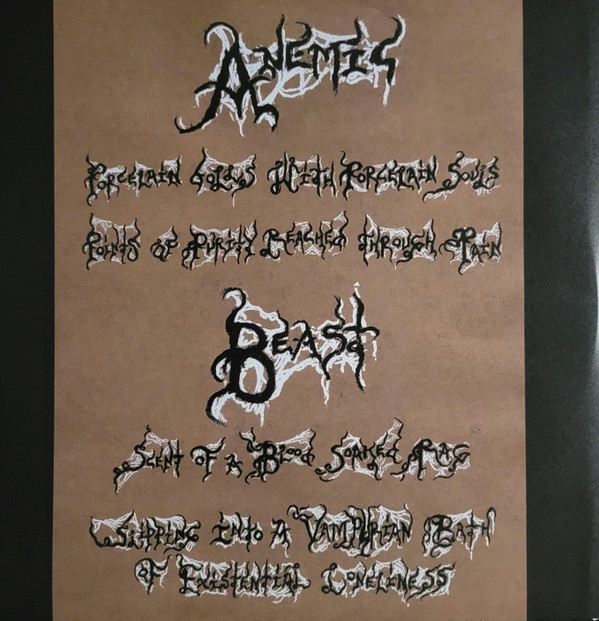 Anemic
Porcelain With Porcelain Souls
Points of Purity Reached Through Pain
Beast
Scent of A Blood Soaked Rag
Slipping Into A Vampyrian Bath
of Existential Loneliness